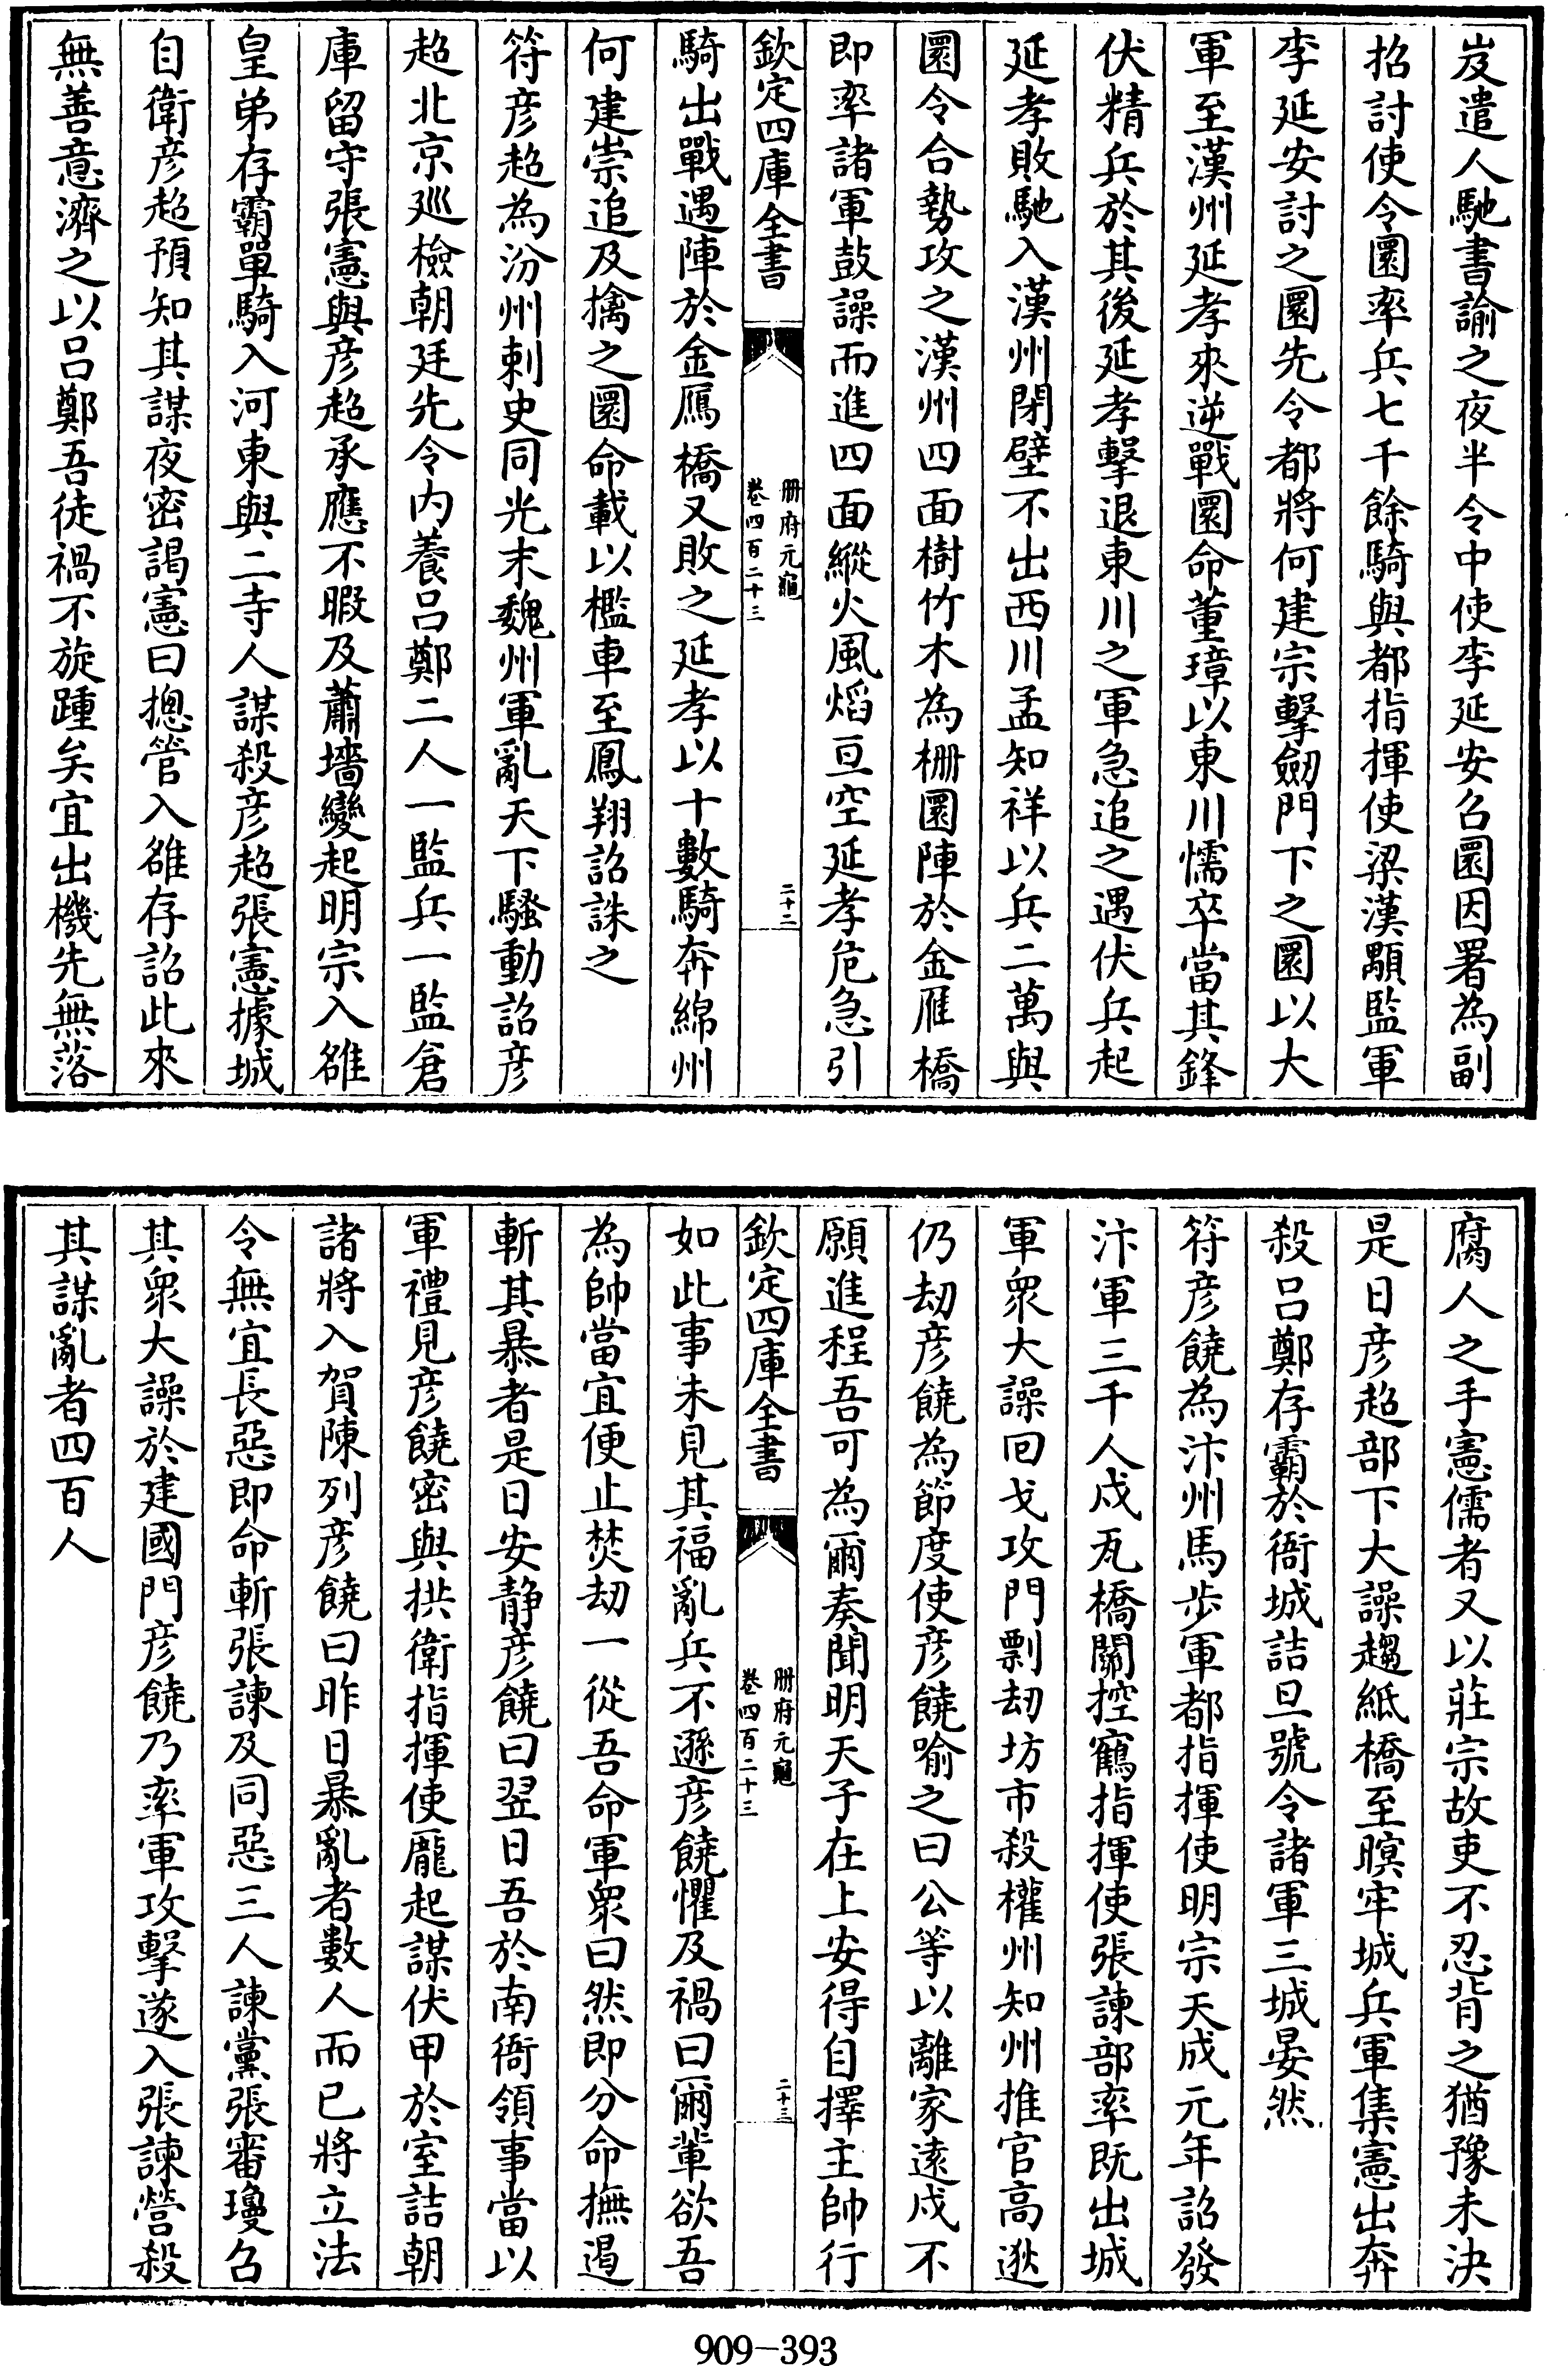 岌遣人馳書諭之夜半令中使李延安召圜因署為副
招討使令圜率兵七千餘騎與都指揮使梁漢顒監軍
李延安討之圜先令都將何建宗擊劒門下之圜以大
軍至漢州延孝來逆戰圜命董璋以東川懦卒當其鋒
伏精兵於其後延孝擊退東川之軍急追之遇伏兵起
延孝敗馳入漢州閉壁不出西川孟知祥以兵二萬與
圜令合勢攻之漢州四面樹竹木為柵圜陣於金雁橋
即率諸軍鼓譟而進四面縱火風焰亘空延孝危急引
欽定四庫全書
册府元龜
卷四百二十三
二十二
騎出戰遇陣於金鴈橋又敗之延孝以十數騎奔綿州
何建崇追及擒之圜命載以檻車至鳳翔詔誅之
符彦超為汾州刺史同光末魏州軍亂天下騷動詔彦
超北京廵檢朝廷先令内養呂鄭二人一監兵一監倉
庫留守張憲與彦超承應不暇及蕭墻變起明宗入雒
皇弟存霸單騎入河東與二寺人謀殺彦超張憲據城
自衛彦超預知其謀夜密謁憲曰摠管入雒存詔此來
無善意濟之以呂鄭吾徒禍不旋踵矣宜出機先無落
腐人之手憲儒者又以莊宗故吏不忍背之猶豫未決
是日彦超部下大譟趨紙橋至暝牢城兵軍集憲出奔
殺呂鄭存霸於衙城詰旦號令諸軍三城晏然
符彦饒為汴州馬步軍都指揮使明宗天成元年詔發
汴軍三千人戍瓦橋關控鶴指揮使張諫部率既出城
軍衆大譟回戈攻門剽刧坊市殺權州知州推官高逖
仍刧彦饒為節度使彦饒喻之曰公等以離家逺戍不
願進程吾可為爾奏聞明天子在上安得自擇主帥行
欽定四庫全書
册府元龜
卷四百二十三
二十三
如此事未見其福亂兵不遜彦饒懼及禍曰爾輩欲吾
為帥當宜便止焚刧一從吾命軍衆曰然即分命撫遏
斬其暴者是日安静彦饒曰翌日吾於南衙領事當以
軍禮見彦饒密與拱衛指揮使龎起謀伏甲於室詰朝
諸將入賀陳列彦饒曰昨日暴亂者數人而已將立法
令無宜長惡即命斬張諫及同惡三人諫黨張審瓊召
其衆大譟於建國門彦饒乃率軍攻擊遂入張諫營殺
其謀亂者四百人
909-393